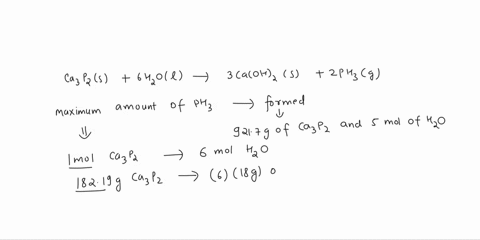 Ca3P2(s) + 6H2O(l) → 3Ca(OH)2 (s) + 2PH3(g)
maximum amount of PH3 → formed
⇓ ⇓
921.7g of Ca3P2 and 5 mol of H2O
1mol Ca3P2 → 6 mol H2O
182.19g Ca3P2 → (6)(18g) o